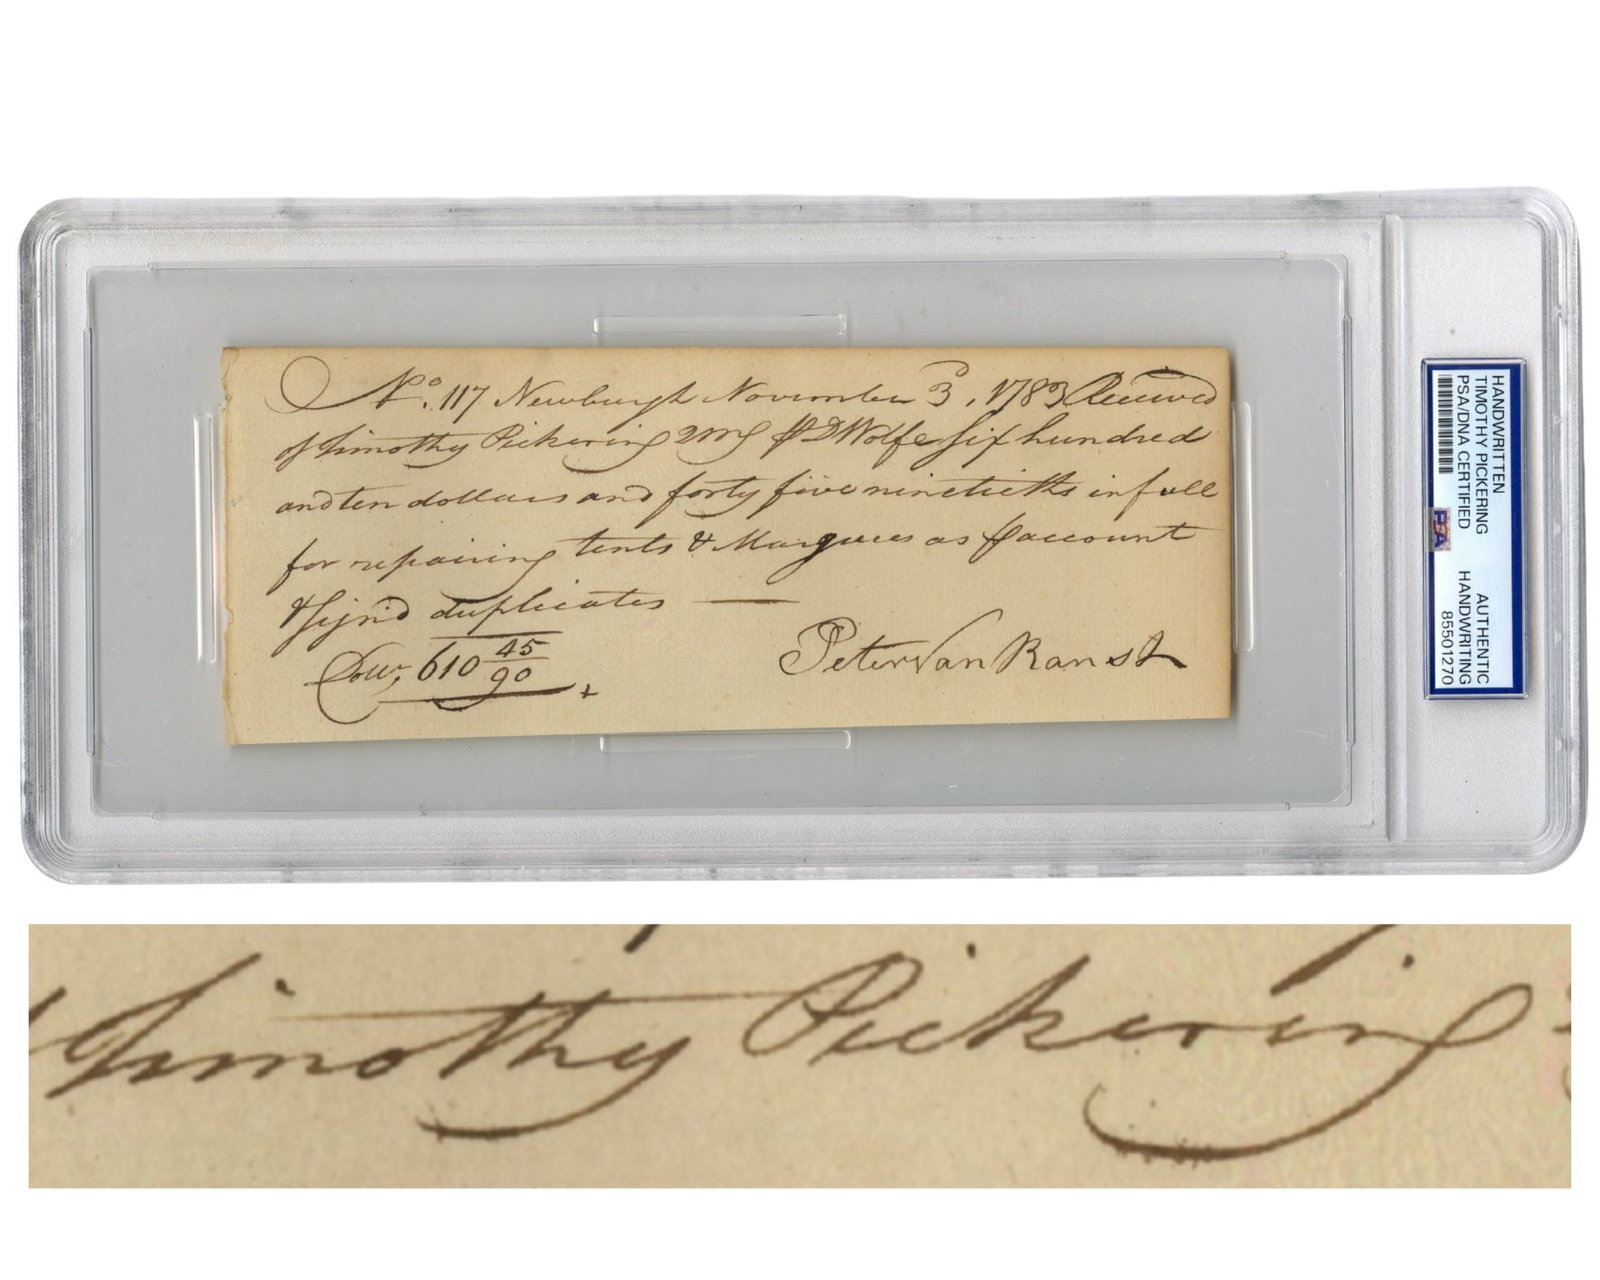 No. 117 Newburgh November 3, 1783 Received
of Timothy Pickering QMG ⅌ D Wolfe Six hundred
and ten dollars and forty five ninetieths in full
for repairing tents & Marquees as ⅌ account
& Sign'd duplicates —
Dolls, 610 45/90
Peter Van Ranst
HANDWRITTEN
TIMOTHY PICKERING
PSA/DNA CERTIFIED
AUTHENTIC
HANDWRITING
85501270
PSA
Timothy Pickering